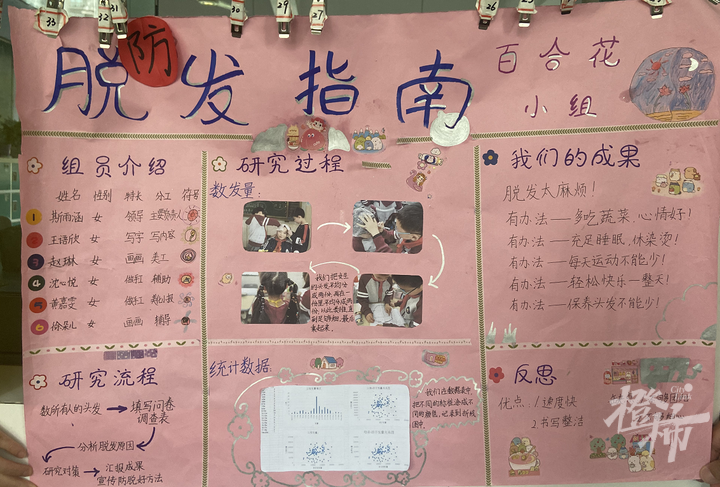 33
31
32
30
29
27
26
25
防
脱发指南
百合花
小组
组员介绍
姓名 性别 特长 分工 符号
1 斯雨涵 女 领导 主要负责人
2 王语欣 女 写字 写内容
3 赵琳 女 画画 美工
4 沈心悦 女 做红 辅助
5 黄嘉雯 女
6 徐杲儿 女 画画 辅导
研究过程
数发量:
我们把女生
的头发平均分
成两份,再在一
份里平均分成两
份,以此类推直
到足够细,最后
来数。
统计数据:
我们在数据表中
把不同的特征涂成不
同的颜色,记录到折线
图中
我们的成果
脱发太麻烦!
有办法——多吃蔬菜,心情好!
有办法——充足睡眠,休染烫!
有办法——每天运动不能少!
有办法——轻松快乐一整天!
有办法——保养头发不能少!
研究流程
数所有人的头发→填写问卷
调查表
分析脱发原因
研究对策→汇报成果
宣传防脱好方法
反思
优点:1速度快
2书写整洁
橙柿